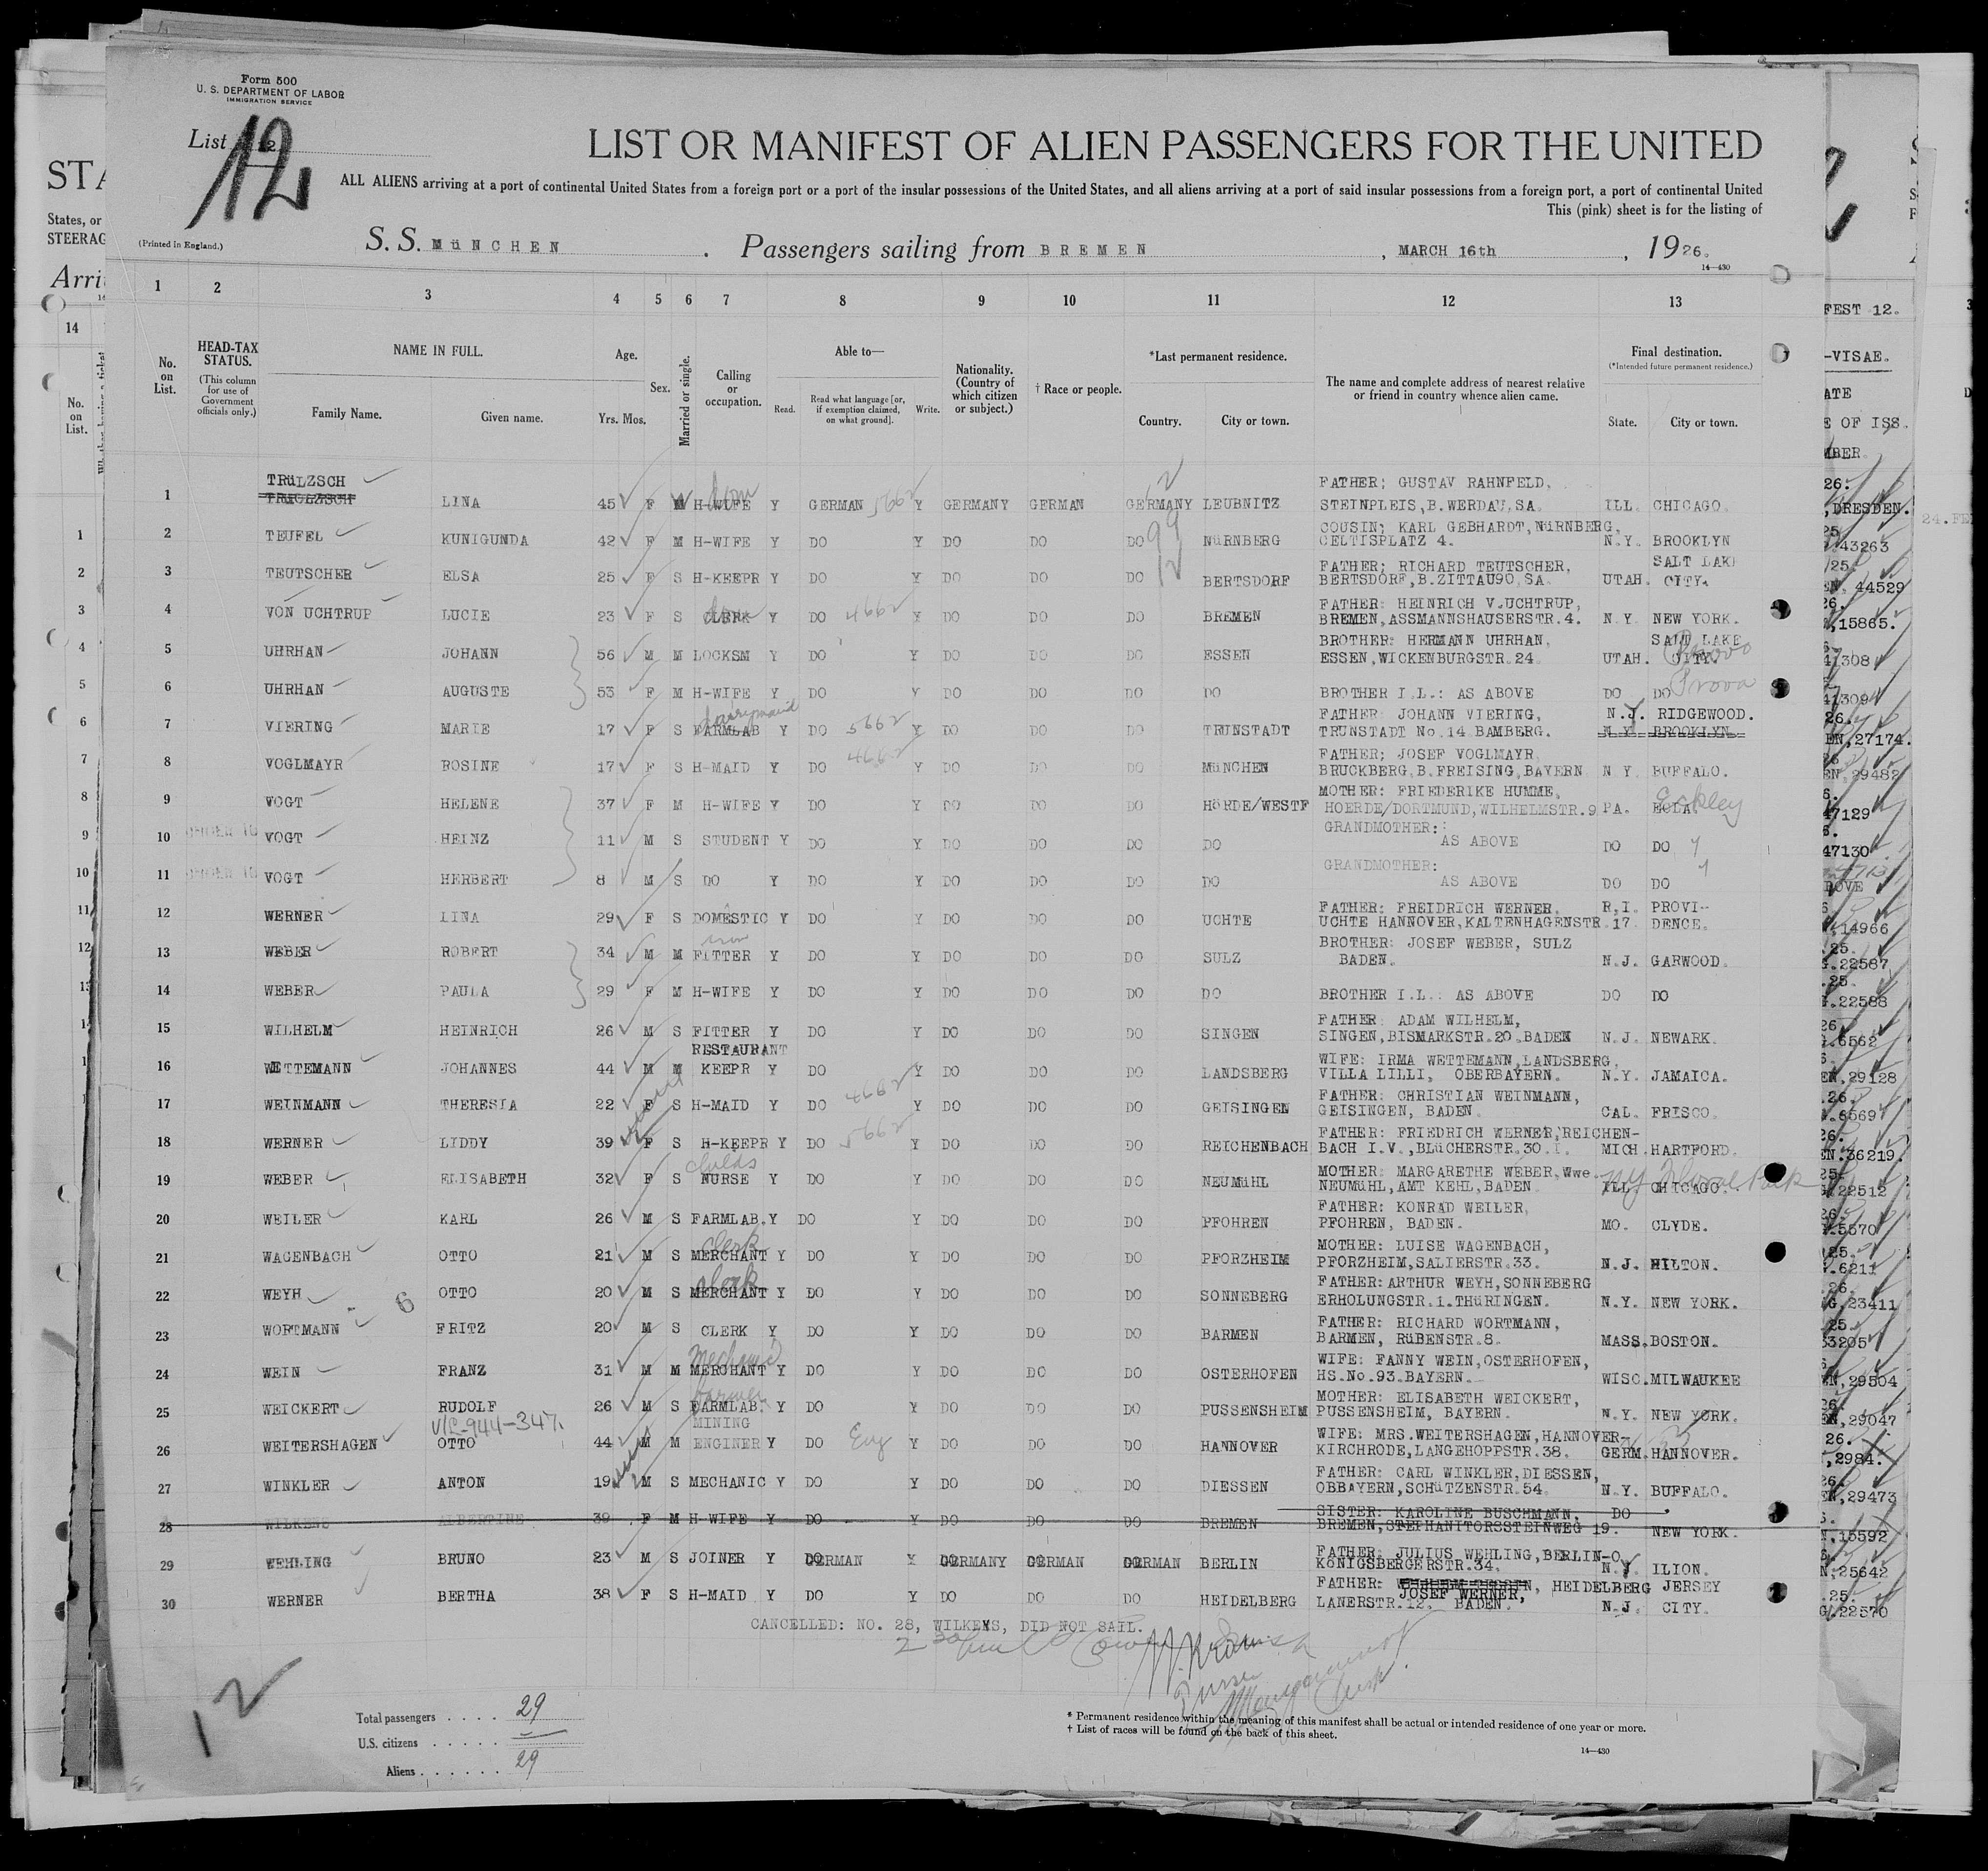 Form 500
U. S. DEPARTMENT OF LABOR
IMMIGRATION SERVICE
List 12
12
LIST OR MANIFEST OF ALIEN PASSENGERS FOR THE UNITED
ALL ALIENS arriving at a port of continental United States from a foreign port or a port of the insular possessions of the United States, and all aliens arriving at a port of said insular possessions from a foreign port, a port of continental United
This (pink) sheet is for the listing of
(Printed in England.)
S. S. MüNCHEN. Passengers sailing from BREMEN, MARCH 16th, 1926.
14—430
1 2 3 4 5 6 7 8 9 10 11 12 13
No. on List.
HEAD-TAX STATUS.
(This column for use of Government officials only.)
NAME IN FULL.
Family Name. Given name.
Age.
Yrs. Mos.
Sex.
Married or single.
Calling or occupation.
Able to—
Read. Read what language [or, if exemption claimed, on what ground]. Write.
Nationality. (Country of which citizen or subject.)
† Race or people.
*Last permanent residence.
Country. City or town.
The name and complete address of nearest relative or friend in country whence alien came.
Final destination.
(*Intended future permanent residence.)
State. City or town.
TRüLZSCH FATHER; GUSTAV RAHNFELD,
1 LINA 45 F M H-WIFE Y GERMAN 5662 Y GERMANY GERMAN GERMANY LEUBNITZ STEINPLEIS,B.WERDAU,SA. ILL. CHICAGO.
COUSIN; KARL GEBHARDT,NüRNBERG,
2 TEUFEL KUNIGUNDA 42 F M H-WIFE Y DO Y DO DO DO NüRNBERG CELTISPLATZ 4. N.Y. BROOKLYN
FATHER; RICHARD TEUTSCHER, SALT LAKE
3 TEUTSCHER ELSA 25 F S H-KEEPR Y DO Y DO DO DO BERTSDORF BERTSDORF,B.ZITTAU90,SA. UTAH. CITY.
FATHER: HEINRICH V.UCHTRUP,
4 VON UCHTRUP LUCIE 23 F S CLERK Y DO 4662 Y DO DO DO BREMEN BREMEN,ASSMANNSHAUSERSTR.4. N.Y. NEW YORK.
BROTHER: HERMANN UHRHAN, SALT LAKE
5 UHRHAN JOHANN 56 M M LOCKSM Y DO Y DO DO DO ESSEN ESSEN,WICKENBURGSTR.24. UTAH. CITY. Provo
6 UHRHAN AUGUSTE 53 F M H-WIFE Y DO Y DO DO DO DO BROTHER I.L.: AS ABOVE DO DO Provo
FATHER: JOHANN VIERING, N.J. RIDGEWOOD.
7 VIERING MARIE 17 F S FARMLAB Y DO 5662 Y DO DO DO TRUNSTADT TRUNSTADT No.14 BAMBERG. N.Y. BROOKLYN.
FATHER; JOSEF VOGLMAYR,
8 VOGLMAYR ROSINE 17 F S H-MAID Y DO 4662 Y DO DO DO MüNCHEN BRUCKBERG,B.FREISING,BAYERN N.Y. BUFFALO.
MOTHER: FRIEDERIKE HUMME,
9 VOGT HELENE 37 F M H-WIFE Y DO Y DO DO DO HöRDE/WESTF HOERDE/DORTMUND,WILHELMSTR.9 PA. Eckley
GRANDMOTHER:
10 UNDER 16 VOGT HEINZ 11 M S STUDENT Y DO Y DO DO DO DO AS ABOVE DO DO
GRANDMOTHER:
11 UNDER 16 VOGT HERBERT 8 M S DO Y DO Y DO DO DO DO AS ABOVE DO DO
FATHER: FREIDRICH WERNER, R.I. PROVI-
12 WERNER LINA 29 F S DOMESTIC Y DO Y DO DO DO UCHTE UCHTE HANNOVER,KALTENHAGENSTR.17 DENCE.
BROTHER: JOSEF WEBER, SULZ
13 WEBER ROBERT 34 M M FITTER Y DO Y DO DO DO SULZ BADEN. N.J. GARWOOD.
14 WEBER PAULA 29 F M H-WIFE Y DO Y DO DO DO DO BROTHER I.L.: AS ABOVE DO DO
FATHER: ADAM WILHELM,
15 WILHELM HEINRICH 26 M S FITTER Y DO Y DO DO DO SINGEN SINGEN,BISMARKSTR.20.BADEN N.J. NEWARK.
RESTAURANT WIFE: IRMA WETTEMANN,LANDSBERG,
16 WETTEMANN JOHANNES 44 M M KEEPR Y DO Y DO DO DO LANDSBERG VILLA LILLI, OBERBAYERN. N.Y. JAMAICA.
FATHER: CHRISTIAN WEINMANN,
17 WEINMANN THERESIA 22 F S H-MAID Y DO 4662 Y DO DO DO GEISINGEN GEISINGEN, BADEN. CAL. FRISCO.
FATHER: FRIEDRICH WERNER,REICHEN-
18 WERNER LIDDY 39 F S H-KEEPR Y DO 5662 Y DO DO DO REICHENBACH BACH I.V.,BLüCHERSTR.30.I. MICH. HARTFORD.
childs MOTHER: MARGARETHE WEBER,Wwe.
19 WEBER ELISABETH 32 F S NURSE Y DO Y DO DO DO NEUMüHL NEUMüHL,AMT KEHL,BADEN. ILL. CHICAGO. NY Floral Park
FATHER: KONRAD WEILER,
20 WEILER KARL 26 M S FARMLAB. Y DO Y DO DO DO PFOHREN PFOHREN, BADEN. MO. CLYDE.
clerk MOTHER: LUISE WAGENBACH,
21 WAGENBACH OTTO 21 M S MERCHANT Y DO Y DO DO DO PFORZHEIM PFORZHEIM,SALIERSTR.33. N.J. HILTON.
clerk FATHER:ARTHUR WEYH,SONNEBERG
22 WEYH OTTO 20 M S MERCHANT Y DO Y DO DO DO SONNEBERG ERHOLUNGSTR.1.THüRINGEN. N.Y. NEW YORK.
6
FATHER: RICHARD WORTMANN,
23 WORTMANN FRITZ 20 M S CLERK Y DO Y DO DO DO BARMEN BARMEN, RüBENSTR.8. MASS. BOSTON.
Mechanic WIFE: FANNY WEIN,OSTERHOFEN,
24 WEIN FRANZ 31 M M MERCHANT Y DO Y DO DO DO OSTERHOFEN HS.No.93.BAYERN. WISC. MILWAUKEE
farmer MOTHER: ELISABETH WEICKERT,
25 WEICKERT RUDOLF 26 M S FARMLAB. Y DO Y DO DO DO PUSSENSHEIM PUSSENSHEIM, BAYERN. N.Y. NEW YORK.
V/L-944-347. MINING WIFE: MRS.WEITERSHAGEN,HANNOVER-
26 WEITERSHAGEN OTTO 44 M M ENGINER Y DO Eng Y DO DO DO HANNOVER KIRCHRODE,LANGEHOPPSTR.38. GERM. HANNOVER.
FATHER: CARL WINKLER,DIESSEN,
27 WINKLER ANTON 19 M S MECHANIC Y DO Y DO DO DO DIESSEN OBBAYERN,SCHüTZENSTR.54. N.Y. BUFFALO.
SISTER: KAROLINE BUSCHMANN, DO
28 WILKENS ALBERTINE 39 F M H-WIFE Y DO Y DO DO DO BREMEN BREMEN,STEPHANITORSSTEINWEG 19. NEW YORK.
FATHER: JULIUS WEHLING,BERLIN-O,
29 WEHLING BRUNO 23 M S JOINER Y GERMAN Y GERMANY GERMAN GERMAN BERLIN KöNIGSBERGERSTR.34. N.Y. ILION.
FATHER: JOSEF WERNER, HEIDELBERG JERSEY
30 WERNER BERTHA 38 F S H-MAID Y DO Y DO DO DO HEIDELBERG LANERSTR.12. BADEN. N.J. CITY.
CANCELLED: NO. 28, WILKENS, DID NOT SAIL.
12
Total passengers . . . . 29
U.S. citizens . . . . . —
Aliens . . . . . . 29
* Permanent residence within the meaning of this manifest shall be actual or intended residence of one year or more.
† List of races will be found on the back of this sheet.
14—430
STA
States, or
STEERAG
Arri
14
No. on List.
FEST 12.
-VISAE.
E OF ISS.
,DRESDEN.
43263
44529
,15865.
41308
41309
EN,27174.
EN,29482
47129
47130
14966
.22587
.22588
.6562
EN,29128
.6569
EN.36219.
22512
.5570
.6211
G,23411
53205
EN,29504
EN,29047
,2984.
EN,29473
N,15592
N,25642
G.22570
24.FE